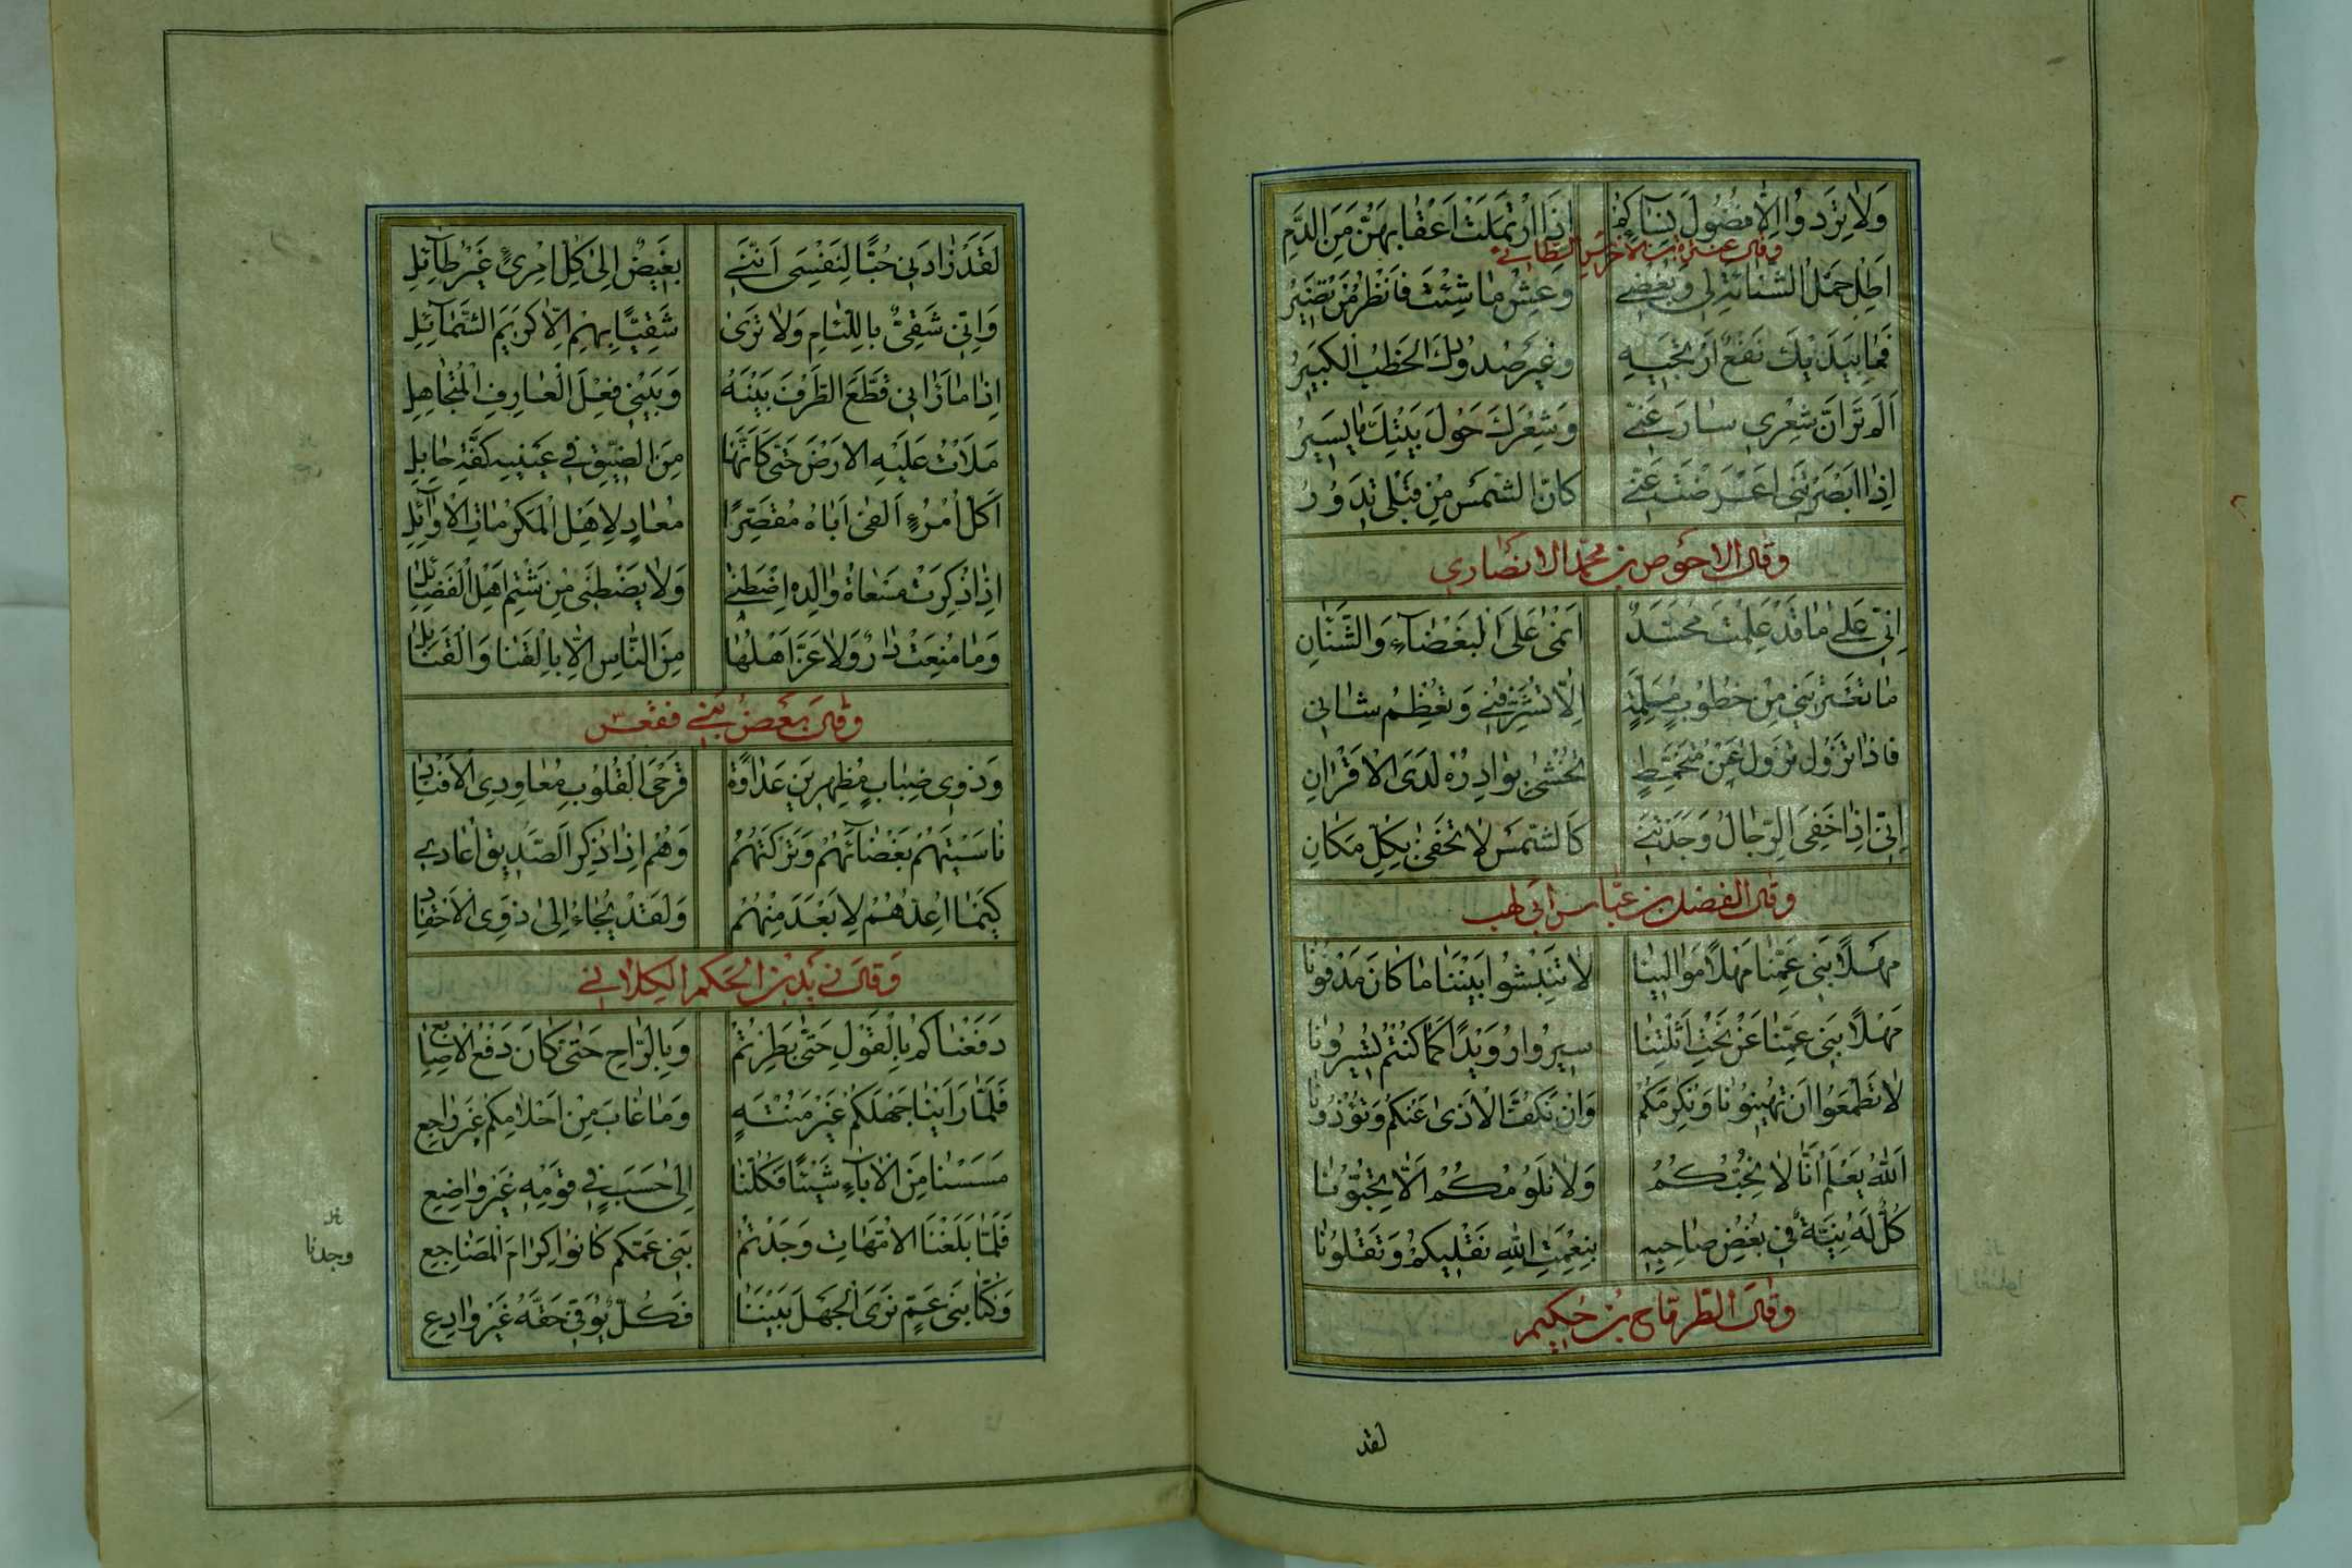 وَلَا تَرِدُوا اِلَّا فُضُولَ نِسَآئِكُمْ اِذَا ارْتَمَلَتْ اَعْقَابُهُنَّ مِنَ الدَّمِ
وقال عنترة بن الاخرس الطائي
اَطِلْ حَمْلَ الشَّنَائَةِ لِي وَبُغْضِي وَعِشْ مَا شِئْتَ فَانْظُرْ مَنْ تَضِيرُ
فَمَا بِيَدَيْكَ نَفْعٌ اَرْتَجِيهِ وَغَيْرُ صُدُودِكَ الخَطْبُ الْكَبِيرُ
اَلَمْ تَرَ اَنَّ شِعْرِي سَارَ عَنِّي وَشِعْرُكَ حَوْلَ بَيْتِكَ مَا يَسِيرُ
اِذَا اَبْصَرْتَنِي اَعْرَضْتَ عَنِّي كَانَّ الشَّمْسَ مِنْ قِبَلِي تَدَوُرُ
وقال الاحوص بن محمد الانصاري
اِنِّي عَلٰى مَا قَدْ عَلِمْتَ مُحَسَّدٌ اَنْمٰى عَلَى الْبَغْضَآءِ وَالشَّنَانِ
مَا تَعْتَرِينِي مِنْ خُطُوبٍ مُلِمَّةٍ اِلَّا تُشَرِّفُنِي وَتُعْظِمُ شَانِي
فَاذَا تَزُولُ تَزُولُ عَنْ مُتَخَمِّطٍ تُخْشٰى بَوَادِرُهُ لَدَى الْاَقْرَانِ
اِنِّي اِذَا خَفِيَ الرِّجَالُ وَجَدْتَنِي كَالشَّمْسِ لَا تَخْفٰى بِكُلِّ مَكَانِ
وقال الفضل بن عباس بن ابي لهب
مَهْلًا بَنِي عَمِّنَا مَهْلًا مَوَالِينَا لَا تَنْبِشُوا بَيْنَنَا مَا كَانَ مَدْفُونَا
مَهْلًا بَنِي عَمِّنَا عَنْ نَحْتِ اَثْلَتِنَا سِيرُوا رُوَيْدًا كَمَا كُنْتُمْ تَسِيرُونَا
لَا تَطْمَعُوا اَنْ تُهِينُونَا وَنُكْرِمَكُمْ وَاَنْ نَكُفَّ الْاَذٰى عَنْكُمْ وَتُؤْذُونَا
اَللّٰهُ يَعْلَمُ اَنَّا لَا نُحِبُّكُمُ وَلَا نَلُومُكُمْ اَلَّا تُحِبُّونَا
كُلٌّ لَهُ نِيَّةٌ فِي بُغْضِ صَاحِبِهِ بِنِعْمَتِ اللهِ نَقْلِيكُمْ وَتَقْلُونَا
وقال الطرماح بن حكيم
لقد
لَقَدْ زَادَنِي حُبًّا لِنَفْسِي اَنَّنِي بَغِيضٌ اِلٰى كُلِّ امْرِئٍ غَيْرِ طَآئِلِ
وَاِنِّي شَقِيٌّ بِاللِّئَامِ وَلَا تَرٰى شَقِيًّا بِهِمْ اِلَّا كَرِيمَ الشَّمَآئِلِ
اِذَا مَا رَانِي قَطَّعَ الطَّرْفَ بَيْنَهُ وَبَيْنِي فِعْلَ الْعَارِفِ الْمُتَجَاهِلِ
مَلَاْتُ عَلَيْهِ الْارَضَ حَتّٰى كَاَنَّهَا مِنَ الضِّيقِ فِي عَيْنَيْهِ كَفَّةُ حَابِلِ
اَكُلُّ امْرُءٍ اَلْفٰى اَبَاهُ مُقَصِّرًا مُعَادٍ لِاَهْلِ الْمَكْرُمَاتِ الْاَوَآئِلِ
اِذَا ذُكِرَتْ مَسْعَاةُ وَالِدِهِ اضْطَنٰى وَلَا يَضْطَنِى مِنْ شَتْمِ اَهْلِ الْفَضَائِلِ
وَمَا مُنِعَتْ دَارٌ وَلَا عَزَّ اَهْلُهَا مِنَ النَّاسِ اِلَّا بِالْقَنَا وَالْقَنَابِلِ
وقال بعض بني فقعس
وَذَوِي ضِبَابٍ مُظْهِرِينَ عَدَاوَةً قَرْحَى الْقُلُوبِ مُعَاوِدِي الْاَفْنَادِ
نَاسَيْتُهُمْ بَغْضَآئَهُمْ وَتَرَكْتُهُمْ وَهُمُ اِذَا ذُكِرَ الصَّدِيقُ اَعَادِي
كَيْمَا اُعِدَّهُمُ لِاَبْعَدَ مِنْهُمُ وَلَقَدْ يُجَاءُ اِلٰى ذَوِي الْاَحْقَادِ
وقال يزيد بن الحكم الكلابي
دَفَعْنَاكُمْ بِالْقَوْلِ حَتّٰى بَطِرْتُمْ وَبِالرَّاحِ حَتّٰى كَانَ دَفْعُ الْاَصَابِعِ
فَلَمَّا رَاَيْنَا جَهْلَكُمْ غَيْرَ مُنْتَهٍ وَمَا غَابَ مِنْ اَحْلَامِكُمْ غَيْرَ رَاجِعِ
مَسَسْنَا مِنَ الْاٰبَآءِ شَيْئًا فَكُلُّنَا اِلٰى حَسَبٍ فِي قَوْمِهِ غَيْرِ وَاضِعِ
فَلَمَّا بَلَغْنَا الْاُمَّهَاتِ وَجَدْتُمْ بَنِي عَمِّكُمْ كَانُوا كِرَامَ الْمَضَاجِعِ
وجدنا
وَكُنَّا بَنِي عَمٍّ نَزَى الْجَهْلُ بَيْنَنَا فَكُلٌّ يُوَفّٰى حَقَّهُ غَيْرَ وَادِعِ